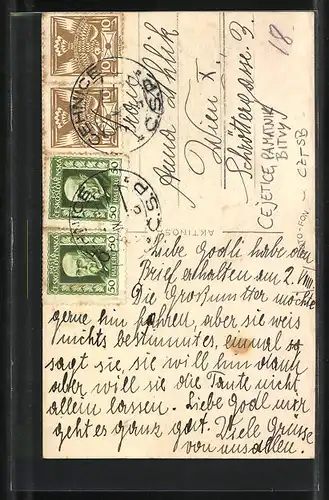 18.
Anna Uhlik
Wien X.
Schröttergasse 3
ČEJETICE, PAMÁTNÍK
BITVY
ČSP
ČSP
10
10
50 50
HALEŘŮ
50 50
HALEŘŮ
AKTINOS
Liebe Godli habe den
Brief erhalten am 2. VIII.
Die Großmutter möchte
gerne hin fahren, aber sie weis
nichts bestimmtes, einmal so
sagt sie, sie will hin dann
aber will sie die Tante nicht
allein lassen. Liebe Godl mir
geht es ganz gut. Viele Grüsse
von uns allen.